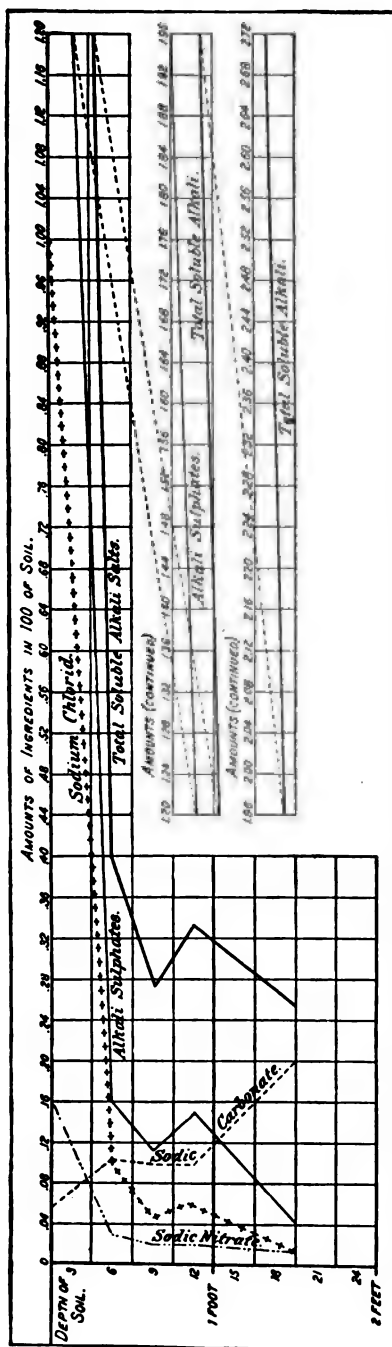 AMOUNTS OF INGREDIENTS IN 100 OF SOIL.
0 .04 .08 .12 .16 .20 .24 .28 .32 .36 .40 .44 .48 .52 .56 .60 .64 .68 .72 .76 .80 .84 .88 .92 .96 1.00 1.04 1.08 1.12 1.16 1.20
DEPTH OF
SOIL.
3
6
9
12
1 FOOT
15
18
21
24
2 FEET
Sodium Chlorid.
Alkali Sulphates.
Total Soluble Alkali Salts.
Sodic Carbonate
Sodic Nitrate
AMOUNTS (CONTINUED)
1.20 1.24 1.28 1.32 1.36 1.40 1.44 1.48 1.56 1.60 1.64 1.68 1.72 1.76 1.80 1.84 1.88 1.92 1.96
Alkali Sulphates.
Total Soluble Alkali.
AMOUNTS (CONTINUED)
1.96 2.00 2.04 2.08 2.12 2.16 2.20 2.24 2.28 2.32 2.36 2.40 2.44 2.48 2.52 2.56 2.60 2.64 2.68 2.72
Total Soluble Alkali.